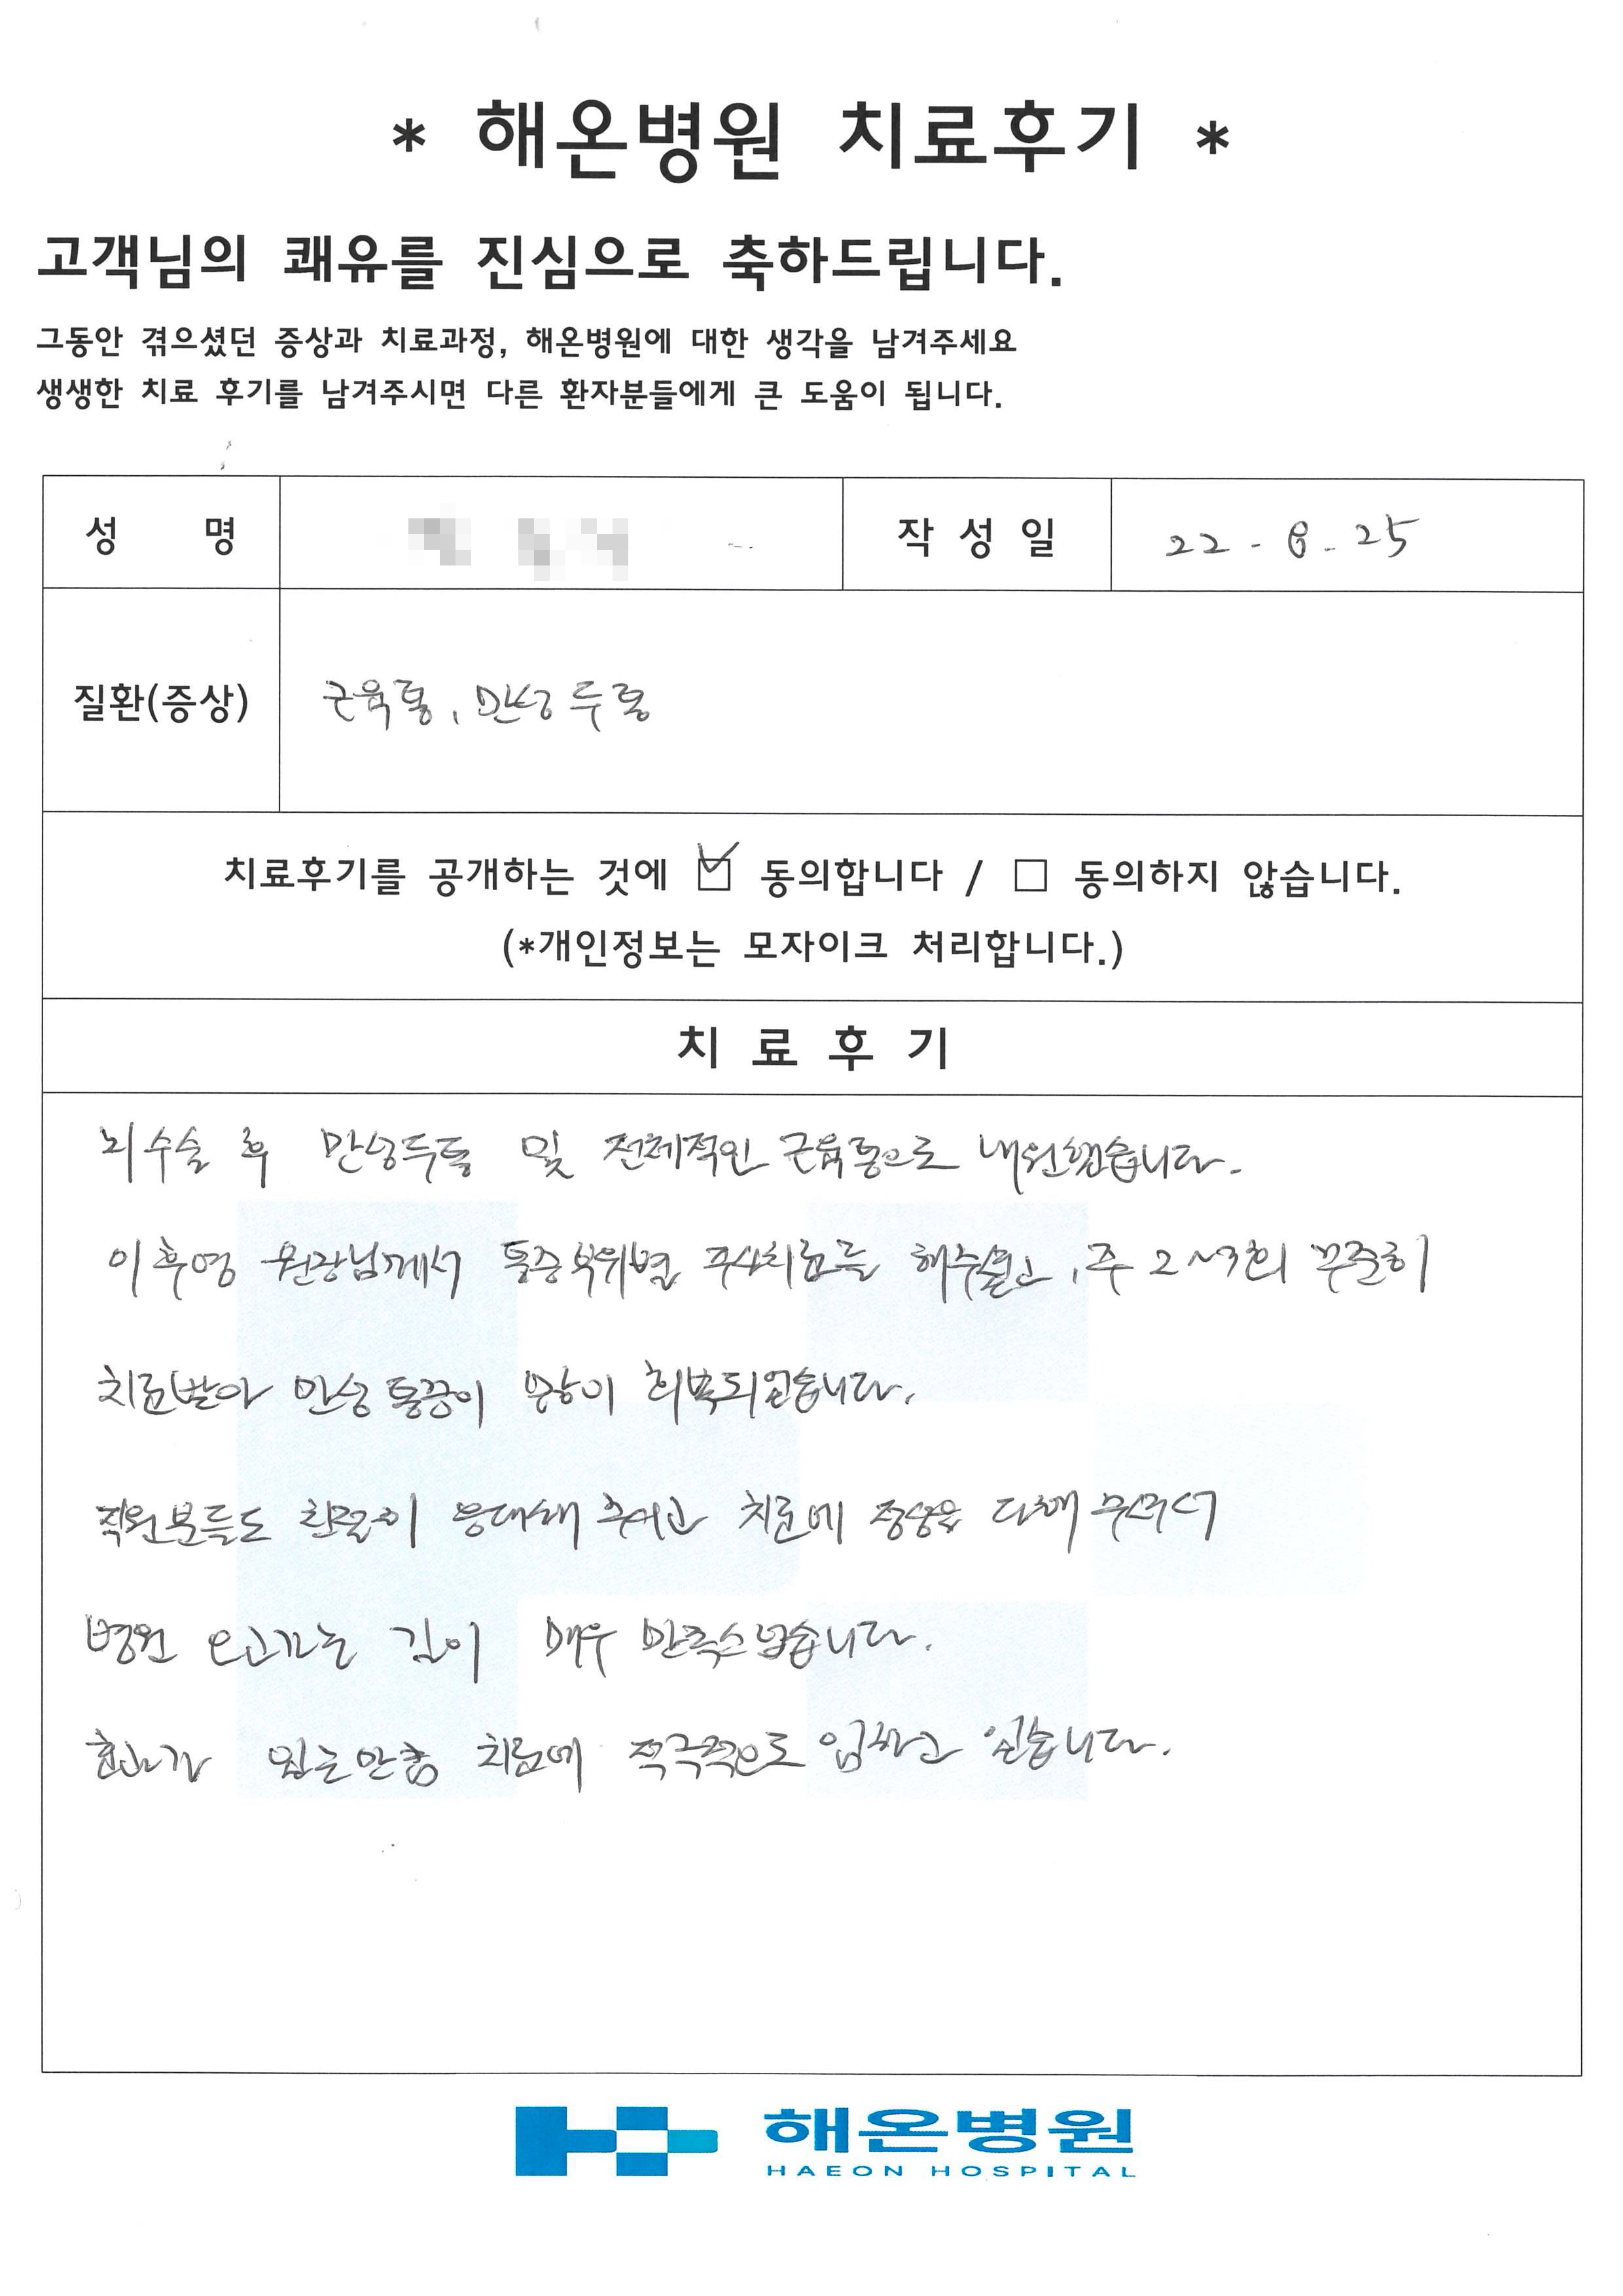 * 해온병원 치료후기 *
고객님의 쾌유를 진심으로 축하드립니다.
그동안 겪으셨던 증상과 치료과정, 해온병원에 대한 생각을 남겨주세요
생생한 치료 후기를 남겨주시면 다른 환자분들에게 큰 도움이 됩니다.
성 명 작 성 일 22 - 8 - 25
질환(증상) 근육통, 만성 두통
치료후기를 공개하는 것에 ☑ 동의합니다 / □ 동의하지 않습니다.
(*개인정보는 모자이크 처리합니다.)
치 료 후 기
뇌수술 후 만성두통 및 전체적인 근육통으로 내원했습니다.
이후영 원장님께서 통증부위별 주사치료를 해주셨고, 주 2~3회 꾸준히
치료받아 만성 통증이 많이 회복되었습니다.
직원분들도 친절히 응대해 주시고 치료에 정성을 다해 주셔서
병원 오고가는 길이 매우 만족스럽습니다.
효과가 있는만큼 치료에 적극적으로 임하고 있습니다.
해온병원
HAEON HOSPITAL